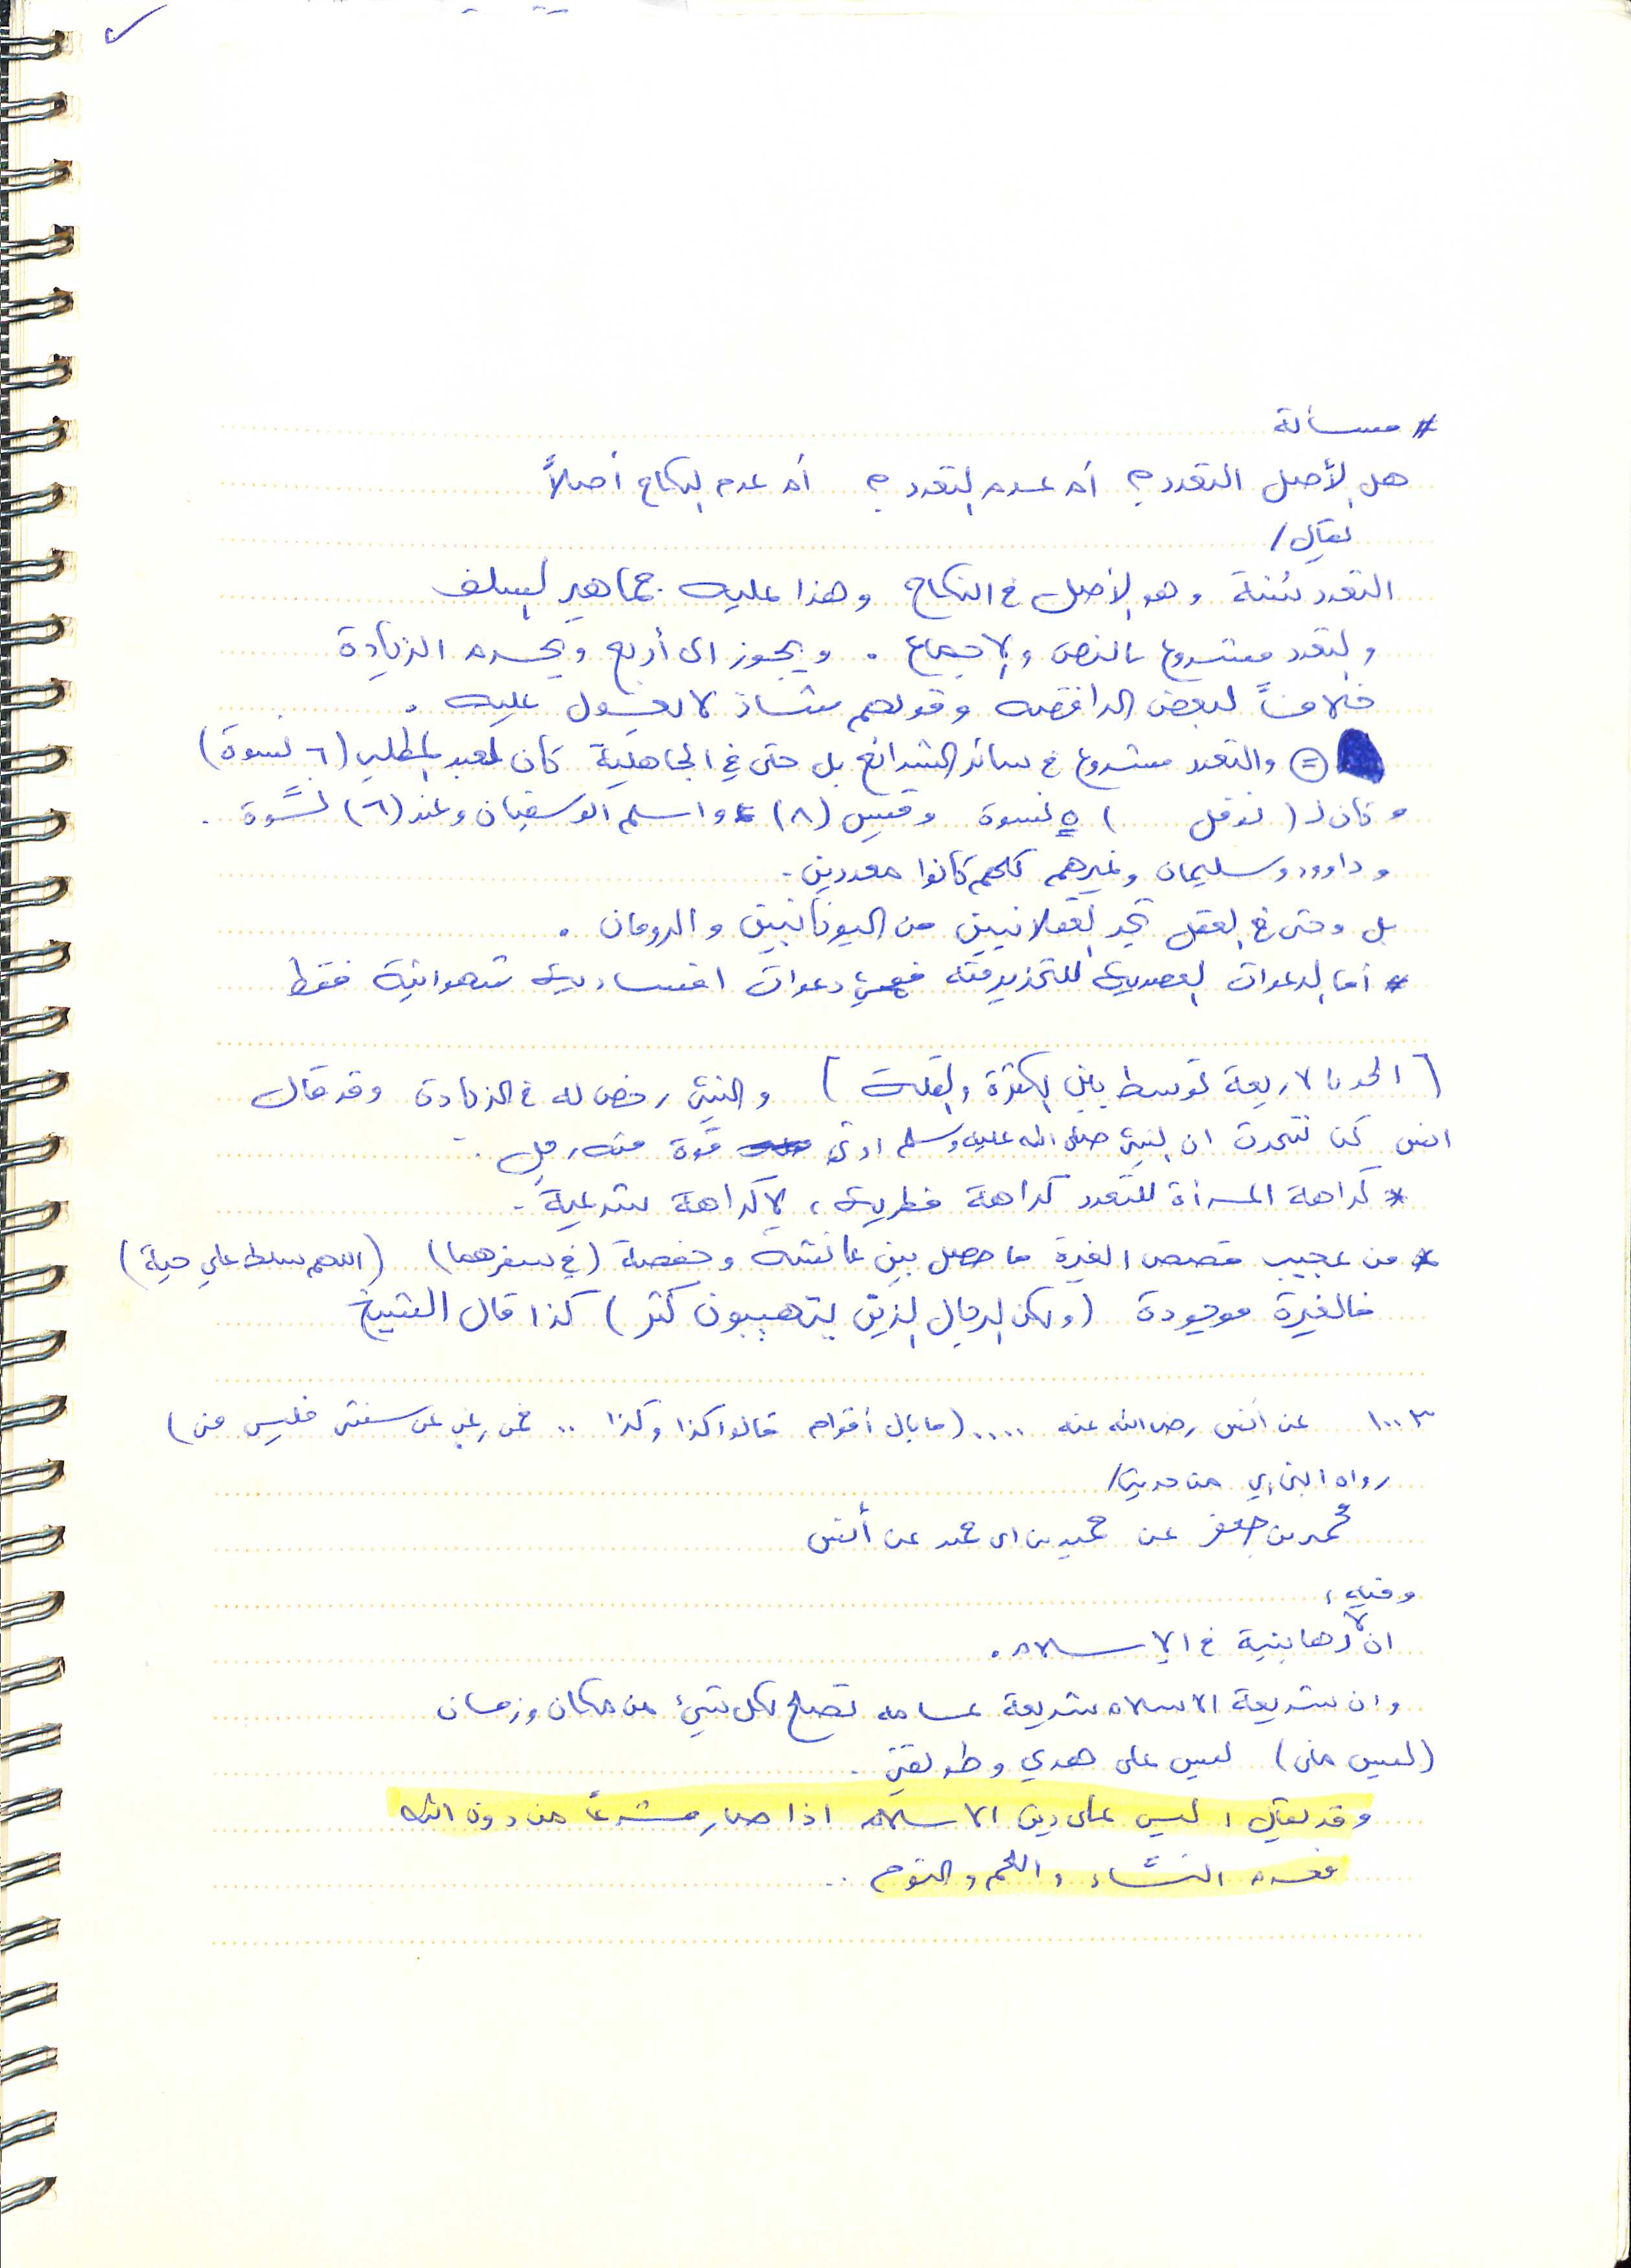 # مسألة
هل الأصل التعدد؟ أم عدم التعدد؟ أم عدم النكاح أصلاً
يقال/
التعدد سُنة وهو الأصل في النكاح وهذا عليه جماهير السلف
والتعدد مشروع بالنص والإجماع . ويجوز الى أربع ويحرم الزيادة
خلافاً لبعض الرافضه وقولهم شاذ لا يعول عليه .
= والتعدد مشروع في سائر الشرائع بل حتى في الجاهلية كان لعبد المطلب (٦ نسوة)
وكان لـ ( نوفل ) ٥ نسوة وقيس (٨) واسلم ابوسفيان وعنده (٦) نسوة .
وداوود وسليمان وغيرهم كلهم كانوا معددين .
بل وحتى في العقل تجد العقلانيين من اليونانيين والرومان .
# أما الدعوات العصرية للتحذير منه فهي دعوات افسادية شهوانية فقط
[ الحد بالاربعة توسط بين الكثرة والقلة ] والنبي رخص له في الزيادة وقد قال
انس كنا نتحدث ان النبي صلى الله عليه وسلم اوتي قوة رجل .
* كراهة المرأة للتعدد كراهة فطرية ، لا كراهة شرعية .
* من عجيب قصص الغيرة ما حصل بين عائشة وحفصة (في سفرهما) (اللهم سلط علي حية)
فالغيرة موجودة (ولكن الرجال الذين يتهيبون كثر) كذا قال الشيخ
١٠٠٣ عن أنس رضي الله عنه .... (ما بال أقوام قالوا كذا وكذا .. فمن رغب عن سنتي فليس مني)
رواه البخاري من حديث/
محمد بن جعفر عن حميد بن ابي حميد عن أنس
وفيه ،
ان لا رهبانية في الإسلام .
وان شريعة الاسلام شريعة عامه تصلح لكل شيء من مكان وزمان
(ليس مني) ليس على هدي وطريقتي .
وقد يقال ، ليس على دين الاسلام اذا صار مشرعاً من دون الله
فحرم النساء واللحم والنوم ..